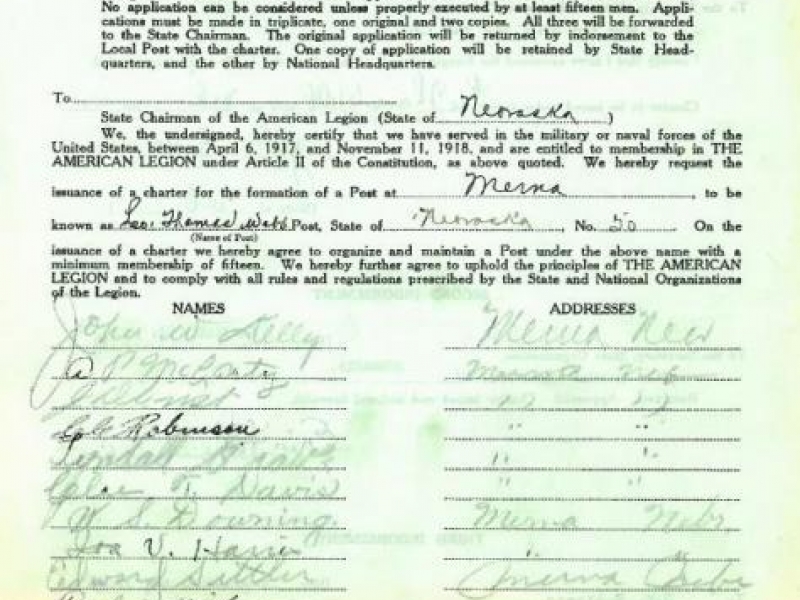 No application can be considered unless properly executed by at least fifteen men. Appli-
cations must be made in triplicate, one original and two copies. All three will be forwarded
to the State Chairman. The original application will be returned by indorsement to the
Local Post with the charter. One copy of application will be retained by State Head-
quarters, and the other by National Headquarters.
To
State Chairman of the American Legion (State of Nebraska)
We, the undersigned, hereby certify that we have served in the military or naval forces of the
United States, between April 6, 1917, and November 11, 1918, and are entitled to membership in THE
AMERICAN LEGION under Article II of the Constitution, as above quoted. We hereby request the
issuance of a charter for the formation of a Post at Merna, to be
known as Thomas Webb Post, State of Nebraska, No. 50 On the
(Name of Post)
issuance of a charter we hereby agree to organize and maintain a Post under the above name with a
minimum membership of fifteen. We hereby further agree to uphold the principles of THE AMERICAN
LEGION and to comply with all rules and regulations prescribed by the State and National Organizations
of the Legion.
NAMES ADDRESSES
John W Kelly Merna Neb
A P McCarty Neb
Robinson " "
" "
T. Davis " "
W. S. Downing Merna Nebr.
V. Harris " "
Edward Merna Nebr